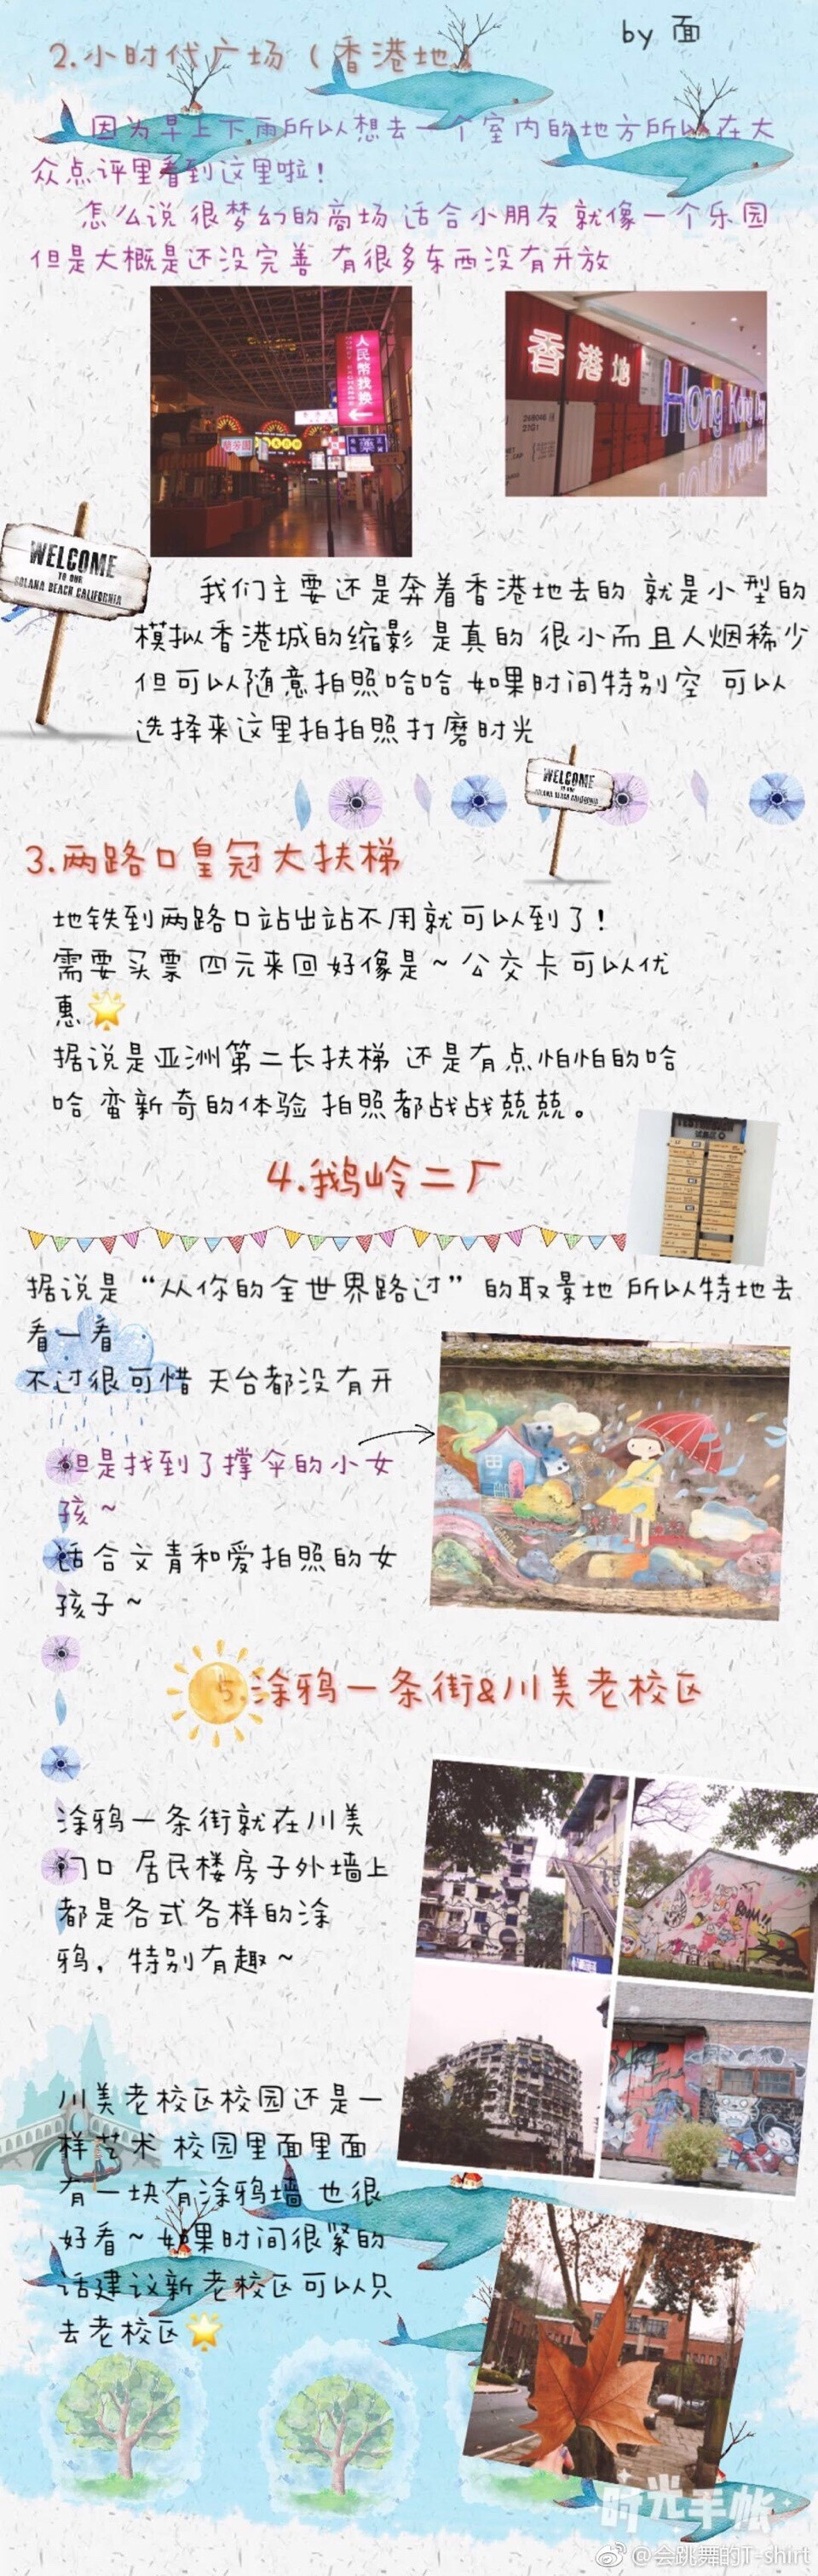 by 面
2.小时代广场（香港地）
因为早上下雨所以想去一个室内的地方所以在大
众点评里看到这里啦！
怎么说 很梦幻的商场 适合小朋友 就像一个乐园
但是大概是还没完善 有很多东西没有开放
人民幣找換
香港地
Hong Kong
WELCOME
TO OUR
SOLANA BEACH CALIFORNIA
我们主要还是奔着香港地去的 就是小型的
模拟香港城的缩影 是真的 很小而且人烟稀少
但可以随意拍照哈哈 如果时间特别空 可以
选择来这里拍拍照打磨时光
WELCOME
TO OUR
SOLANA BEACH CALIFORNIA
3.两路口皇冠大扶梯
地铁到两路口站出站不用就可以到了！
需要买票 四元来回好像是~ 公交卡可以优
惠🌟
据说是亚洲第二长扶梯 还是有点怕怕的哈
哈 蛮新奇的体验 拍照都战战兢兢。
4.鹅岭二厂
据说是“从你的全世界路过”的取景地 所以特地去
看一看
不过很可惜 天台都没有开
但是找到了撑伞的小女
孩~
适合文青和爱拍照的女
孩子~
5.涂鸦一条街&川美老校区
涂鸦一条街就在川美
门口 居民楼房子外墙上
都是各式各样的涂
鸦，特别有趣~
BOOM!!
川美老校区校园还是一
样艺术 校园里面里面
有一块有涂鸦墙 也很
好看~ 如果时间很紧的
话建议新老校区可以只
去老校区🌟
时光手帐
@会跳舞的T-shirt